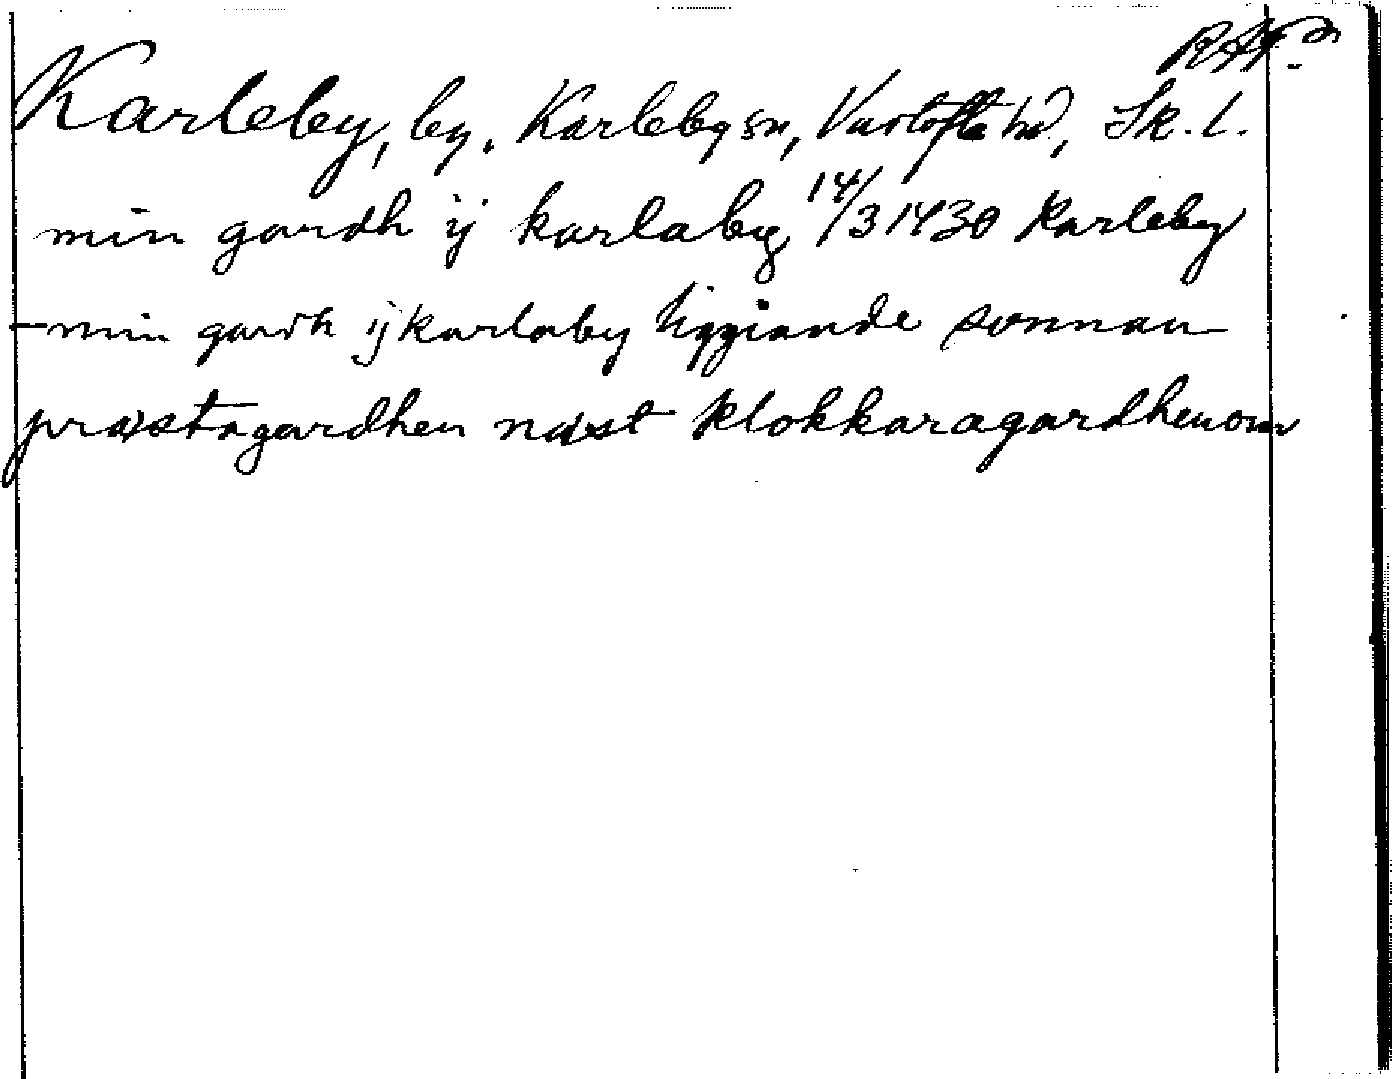 RAp.
Karleby, by, Karleby sn, Vartofta hd, Sk. l.
min gardh ij karlaby 14/3 1430 Karleby
– min gardh ij karlaby liggiande sunnan
præstagardhen næst klokkaragardhenom